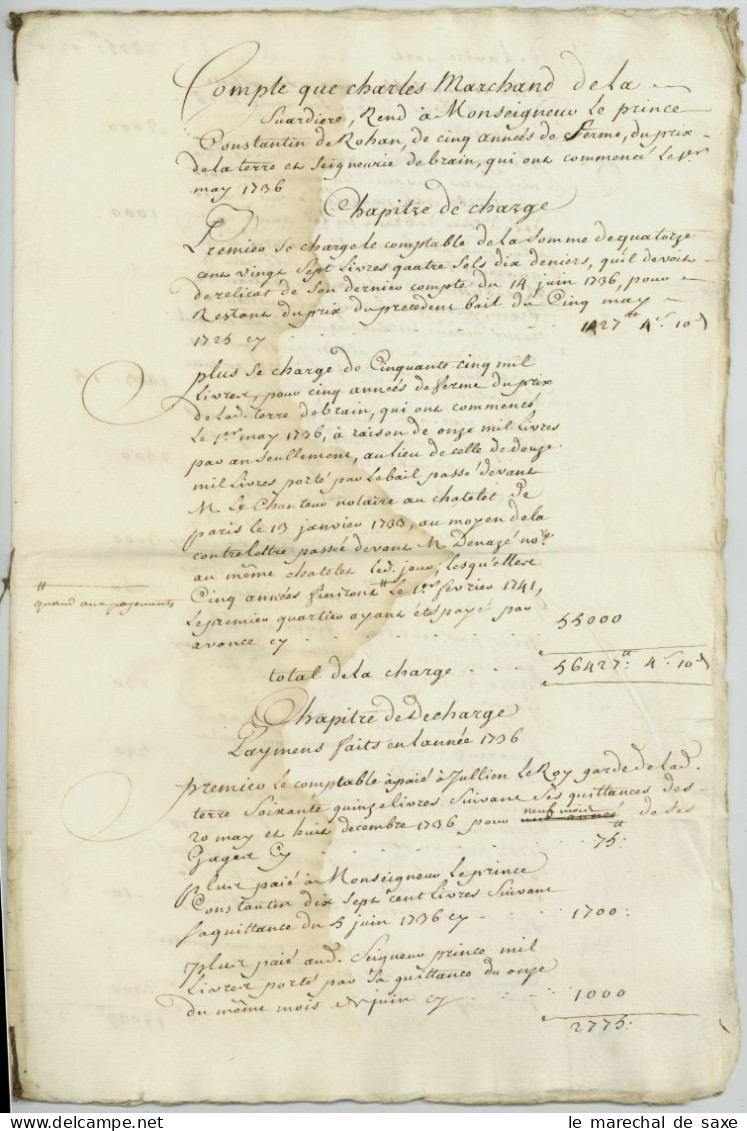 Compte que charles Marchand de la
Suardiere, Rend à Monseigneur Le prince
Constantin de Rohan, de cinq années de ferme, du prix
de la terre et Seigneurie de brain, qui ont commencé le 1er
may 1736
Chapitre de charge
Premier se charge le comptable de la somme de quatorze
cent vingt sept livres quatre sols dix deniers, qu'il devoit
de relicat de son dernier compte du 14 juin 1736, pour
Restant du prix du precedent bail du Cinq may
1725 cy 1427tt 4s 10d
plus se charge de Cinquante cinq mil
Livres, pour cinq années de ferme du prix
de lad. terre de brain, qui ont commencé
Le 1er may 1736, à raison de onze mil Livres
par an seullement, au lieu de celle de douze
mil Livres porté par le bail passé devant
M. Le Chanteur notaire au chatelet de
paris le 13 janvier 1733, au moyen de la
contrelettre passée devant M. Denazé nore.
au même chatelet led. jour, lesquelles
Cinq années finiront # Le 1er fevrier 1741,
# quand aux payements
Le premier quartier ayant été payé par
avance cy . . . . . . 55000
total de la charge . . . 56427tt: 4s 10d
Chapitre de Decharge
Paymens faits en l'année 1736
premier Le comptable a paié à Jullien Le Roy garde de lad.
terre Soixante quinze livres Suivant ses quittances des
20 may et huit decembre 1736 pour neuf mois une année de ses
Gages Cy . . . . . . 75tt:
plus paié à Monseigneur Le prince
Constantin dix sept cent Livres Suivant
sa quittance du 5 juin 1736 cy . . . 1700:
plus paié aud. Seigneur prince mil
Livres porté par sa quittance du onze
du même mois de juin cy . . . 1000
2775:
le marechal de saxe